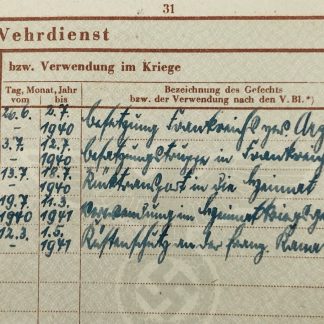 31
Wehrdienst
bzw. Verwendung im Kriege
Tag, Monat, Jahr
vom bis
Bezeichnung des Gefechts
bzw. der Verwendung nach den V. Bl.*)
26.6. – 2.7. 1940 Besetzung Frankreichs
3.7. – 12.7. 1940 Besatzungstruppe in Frankreich
13.7. – 18.7. 1940 Rücktransport in die Heimat
19.7. 1940 11.3. 1941 Verwendung im Heimatkriegsge
12.3. – 1.5. 1941 Küstenschutz an der franz. Kana